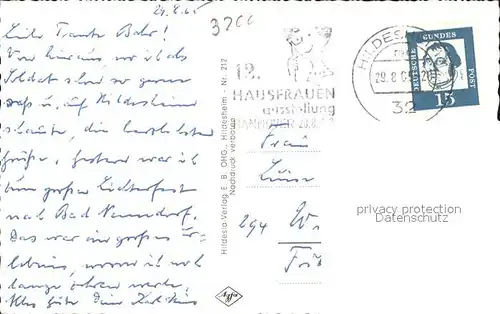 29.8.6
3200
Liebe Tante
Von hier aus, wo ich als
Soldat schon so gerne
saß u. auf Hildesheim
schaute, die herzlichsten
Grüße. Gestern war ich
zum großen Lichterfest
nach Bad Nenndorf.
Das war ein großes Er-
lebnis, wovon ich noch
lange zehren werde.
Alles Gute Dein
Hildesia-Verlag E. B. OHG., Hildesheim - Nr. 212
Nachdruck verboten
Agfa
12.
HAUSFRAUEN
ausstellung
HANNOVER 20.8.
HILDESH
29.8.6
32
DEUTSCHE BUNDES POST
15
Frau
Luise
294
privacy protection
Datenschutz